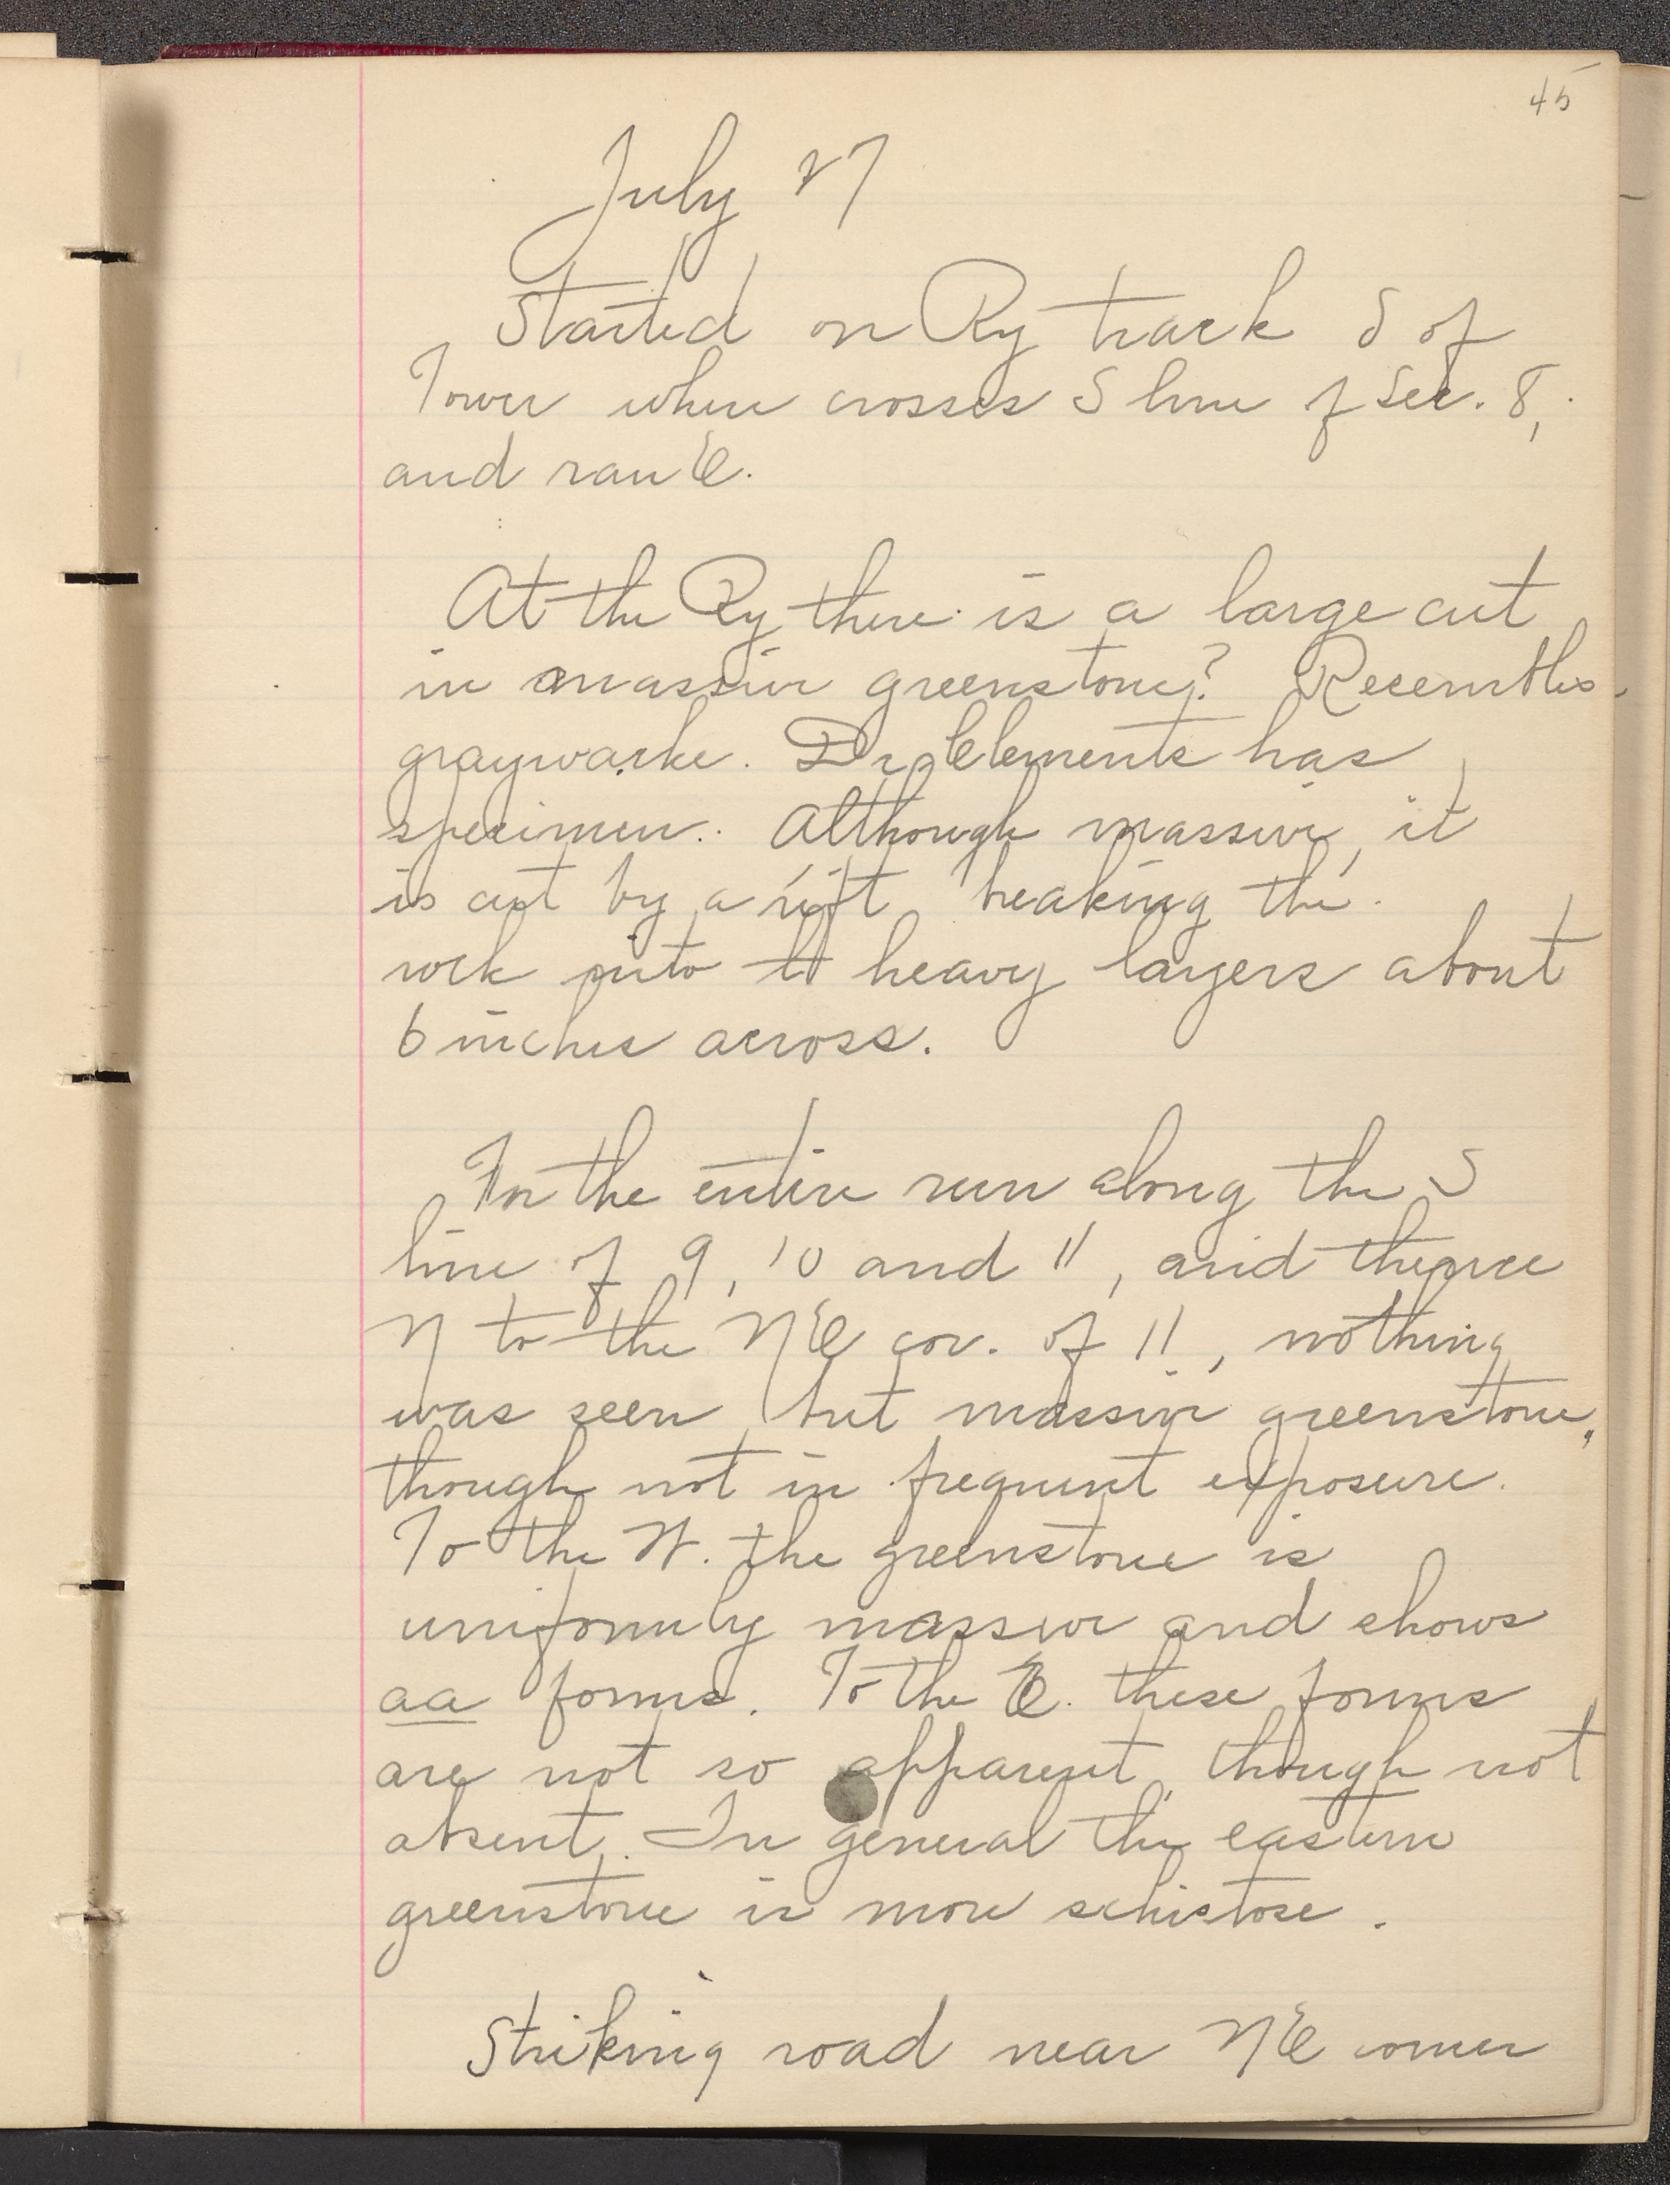 45
July 27
Started on Ry track S of
Tower where crosses S line of Sec. 8,
and ran E.
At the Ry there is a large cut
in massive greenstone? Resembles
graywacke. Dr Clements has
specimen. Although massive, it
is cut by a rift breaking the
rock into heavy layers about
6 inches across.
For the entire run along the S
line of 9, 10 and 11, and thence
N to the NE cor. of 11, nothing
was seen but massive greenstone,
though not in frequent exposure.
To the W. the greenstone is
uniformly massive and shows
aa forms. To the E. these forms
are not so apparent, though not
absent. In general the eastern
greenstone is more schistose.
Striking road near NE corner